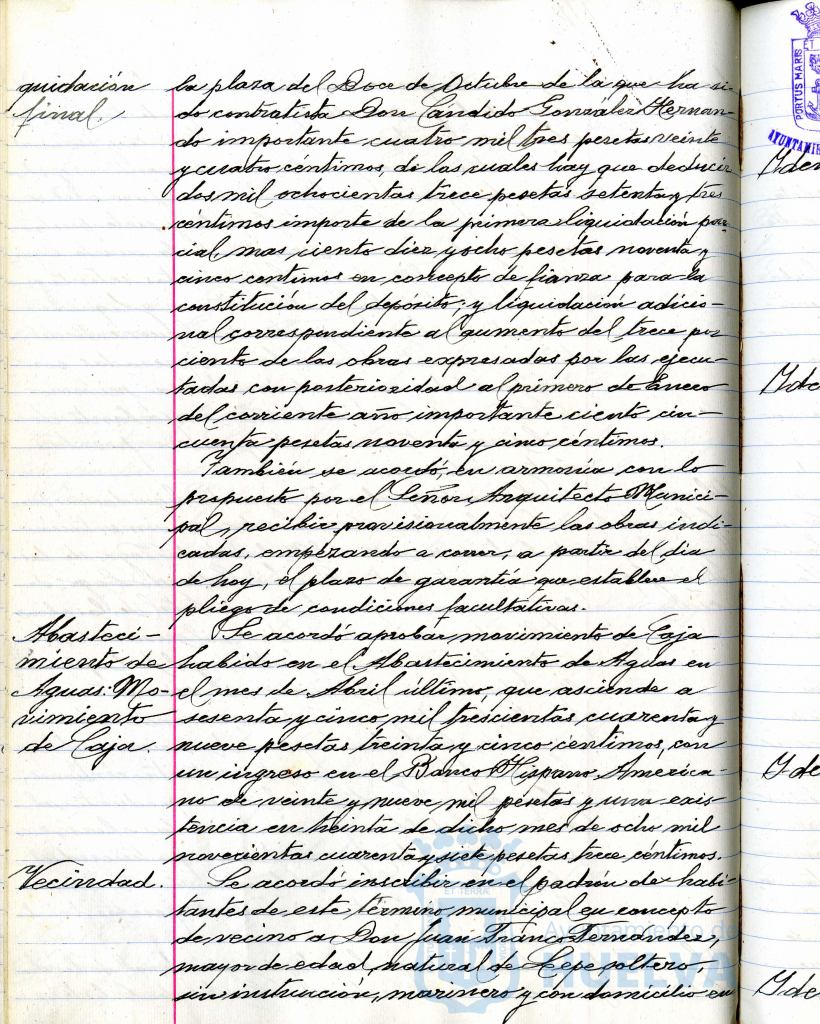 quidación
final.
la plaza del Doce de Octubre de la que ha si-
do contratista Don Cándido González Hernan-
do importante cuatro mil tres pesetas veinte
y cuatro céntimos, de las cuales hay que deducir
dos mil ochocientas trece pesetas setenta y tres
céntimos importe de la primera liquidación par-
cial, mas ciento diez y ocho pesetas noventa y
cinco centimos en concepto de fianza para la
constitución del depósito; y liquidación adicio-
nal correspondiente al aumento del trece por
ciento de las obras expresadas por las ejecu-
tadas con posterioridad al primero de Enero
del corriente año importante ciento cin-
cuenta pesetas noventa y cinco céntimos.
Tambien se acordó, en armonía con lo
propuesto por el Señor Arquitecto Munici-
pal, recibir provisionalmente las obras indi-
cadas, empezando a correr, a partir del dia
de hoy, el plazo de garantía que establece el
pliego de condiciones facultativas.
Abasteci-
miento de
Aguas: Mo-
vimiento
de Caja.
Se acordó aprobar movimiento de Caja
habido en el Abastecimiento de Aguas en
el mes de Abril último, que asciende a
sesenta y cinco mil trescientas cuarenta y
nueve pesetas treinta y cinco centimos, con
un ingreso en el Banco Hispano America-
no de veinte y nueve mil pesetas y una exis-
tencia en treinta de dicho mes de ocho mil
novecientas cuarenta y siete pesetas trece céntimos.
Vecindad.
Se acordó inscribir en el padrón de habi-
tantes de este término municipal en concepto
de vecino a Don Juan Franco Fernandez,
mayor de edad, natural de Lepe soltero
sin instrucción, marinero y con domicilio en
Ayuntamiento de
HUELVA
PORTUS MARIS
AYUNTAMIE
Iden
Ide
Ide
Ide